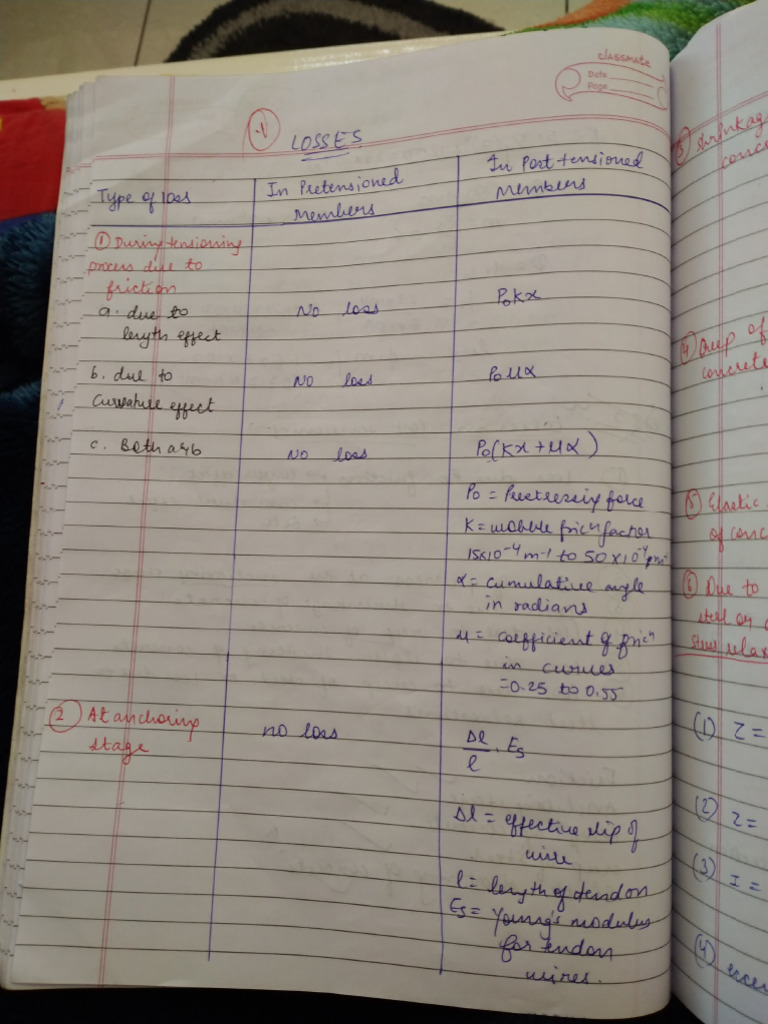 classmate
Date
Page
LOSSES
Type of loss
In Pretensioned
Members
In Post tensioned
Members
① During tensioning
process due to
friction
a. due to
length effect
No loss
P₀Kx
b. due to
Curvature effect
No loss
P₀μα
c. Both a & b
No loss
P₀(Kx + μα)
P₀ = Prestressing force
K = wobble fricⁿ factor
15×10⁻⁴ m⁻¹ to 50×10⁻⁴
α = cumulative angle
in radians
μ = coefficient of fricⁿ
in curves
= 0.25 to 0.55
② At anchoring
stage
no loss
Δl/l . Es
Δl = effective slip of
wire
l = length of tendon
Es = Young's modulus
for tendon
wires.
③ Shrinkag
conc
④ Creep of
concrete
⑤ Elastic
of conc
⑥ Due to
steel or
steel relax
(1) Z =
(2) Z =
(3) I =
(4)